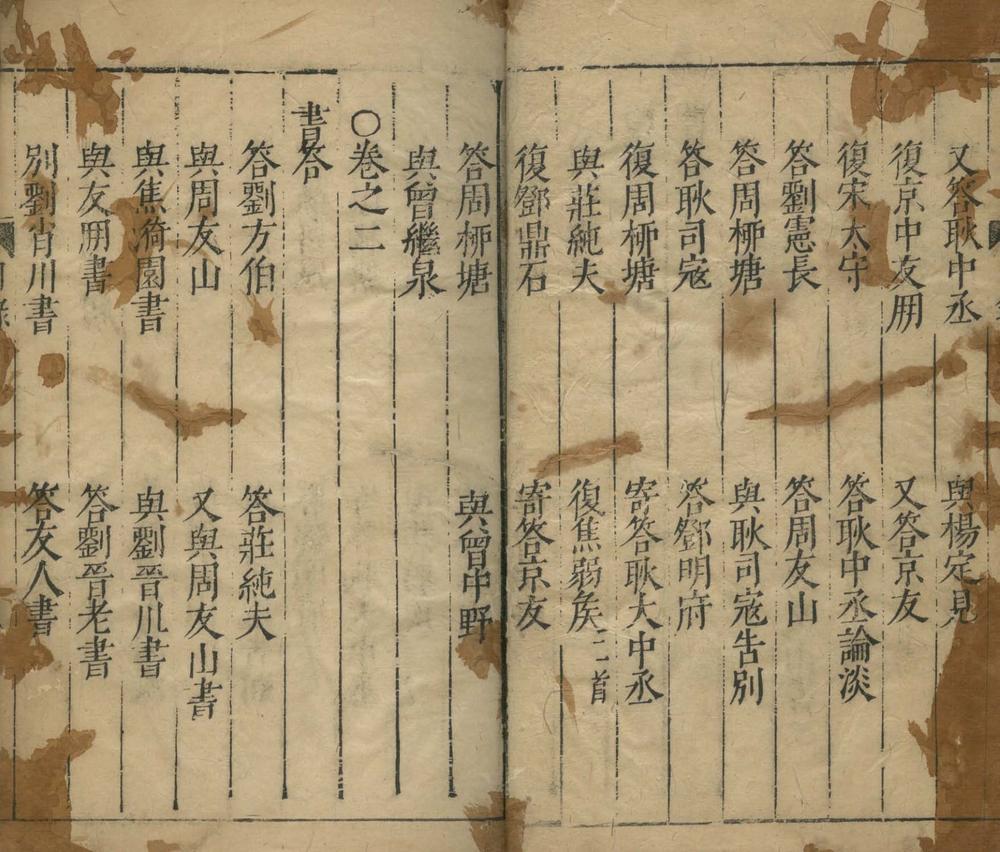 又答耿中丞　與楊定見
復京中友朋　又答京友
復宋太守　答耿中丞論淡
答劉憲長　答周友山
答周栁塘　與耿司寇吿別
答耿司寇　答鄧明府
復周栁塘　寄答耿大中丞
與莊純夫　復焦弱侯 二首
復鄧鼎石　寄答京友
答周栁塘　與曾中野
與曾繼泉
○卷之二
書答
答劉方伯　答莊純夫
與周友山　又與周友山書
與焦漪園書　與劉晉川書
與友朋書　答劉晉老書
別劉肖川書　答友人書